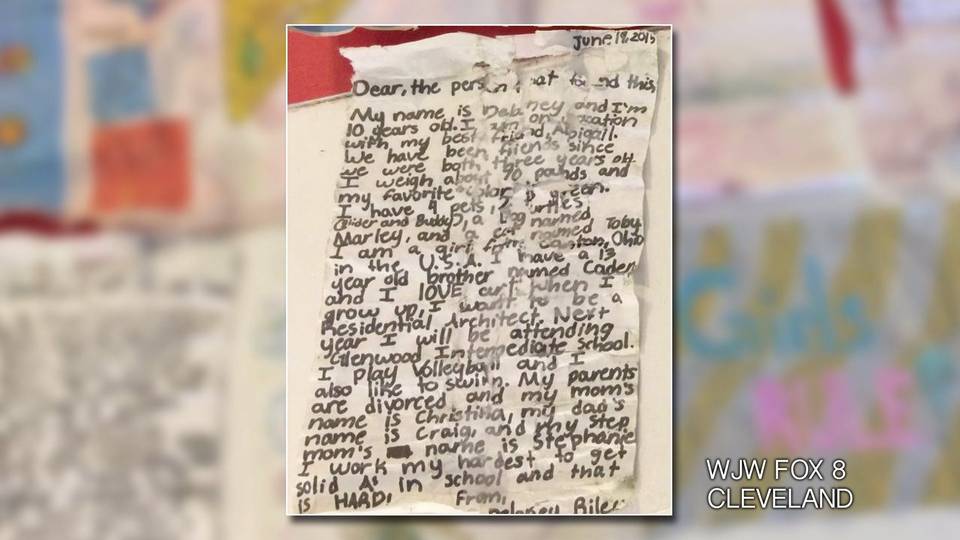 June 19, 2015
Dear, the person that found this,
My name is Delaney and I'm
10 years old. I am on vacation
with my best friend, Abigail.
We have been friends since
we were both three years old.
I weigh about 70 pounds and
my favorite color is green.
I have 4 pets, 2 turtles
(Glider and Buddy), a dog named Toby
Marley, and a cat named
I am a girl from Canton, Ohio
in the U.S.A. I have a 13
year old brother named Caden
and I lOVE art. When I
grow up, I want to be a
Residential Architect. Next
year I will be attending
Glenwood Intermediate school.
I play Volleyball and I
also like to swim. My parents
are divorced and my mom's
name is Christina, my dad's
name is Craig, and my step
mom's name is Stephanie
I work my hardest to get
solid A's in school and that
is HARD! From,
Delaney
Girls
RULE
WJW FOX 8
CLEVELAND